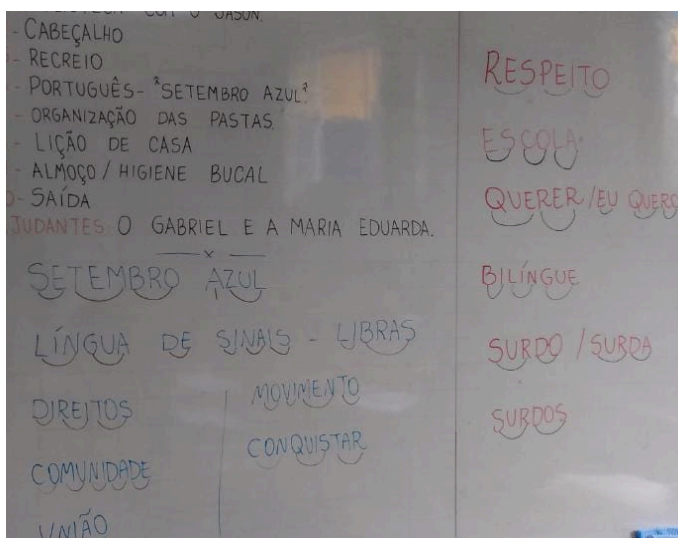 COM O JASON.
- CABEÇALHO
- RECREIO
- PORTUGUÊS- "SETEMBRO AZUL".
- ORGANIZAÇÃO DAS PASTAS.
- LIÇÃO DE CASA
- ALMOÇO / HIGIENE BUCAL
- SAÍDA
JUDANTES: O GABRIEL E A MARIA EDUARDA.
x
SETEMBRO AZUL
LÍNGUA DE SINAIS - LIBRAS
DIREITOS
MOVIMENTO
COMUNIDADE
CONQUISTAR
UNIÃO
RESPEITO
ESCOLA
QUERER / EU QUERO
BILÍNGUE
SURDO / SURDA
SURDOS